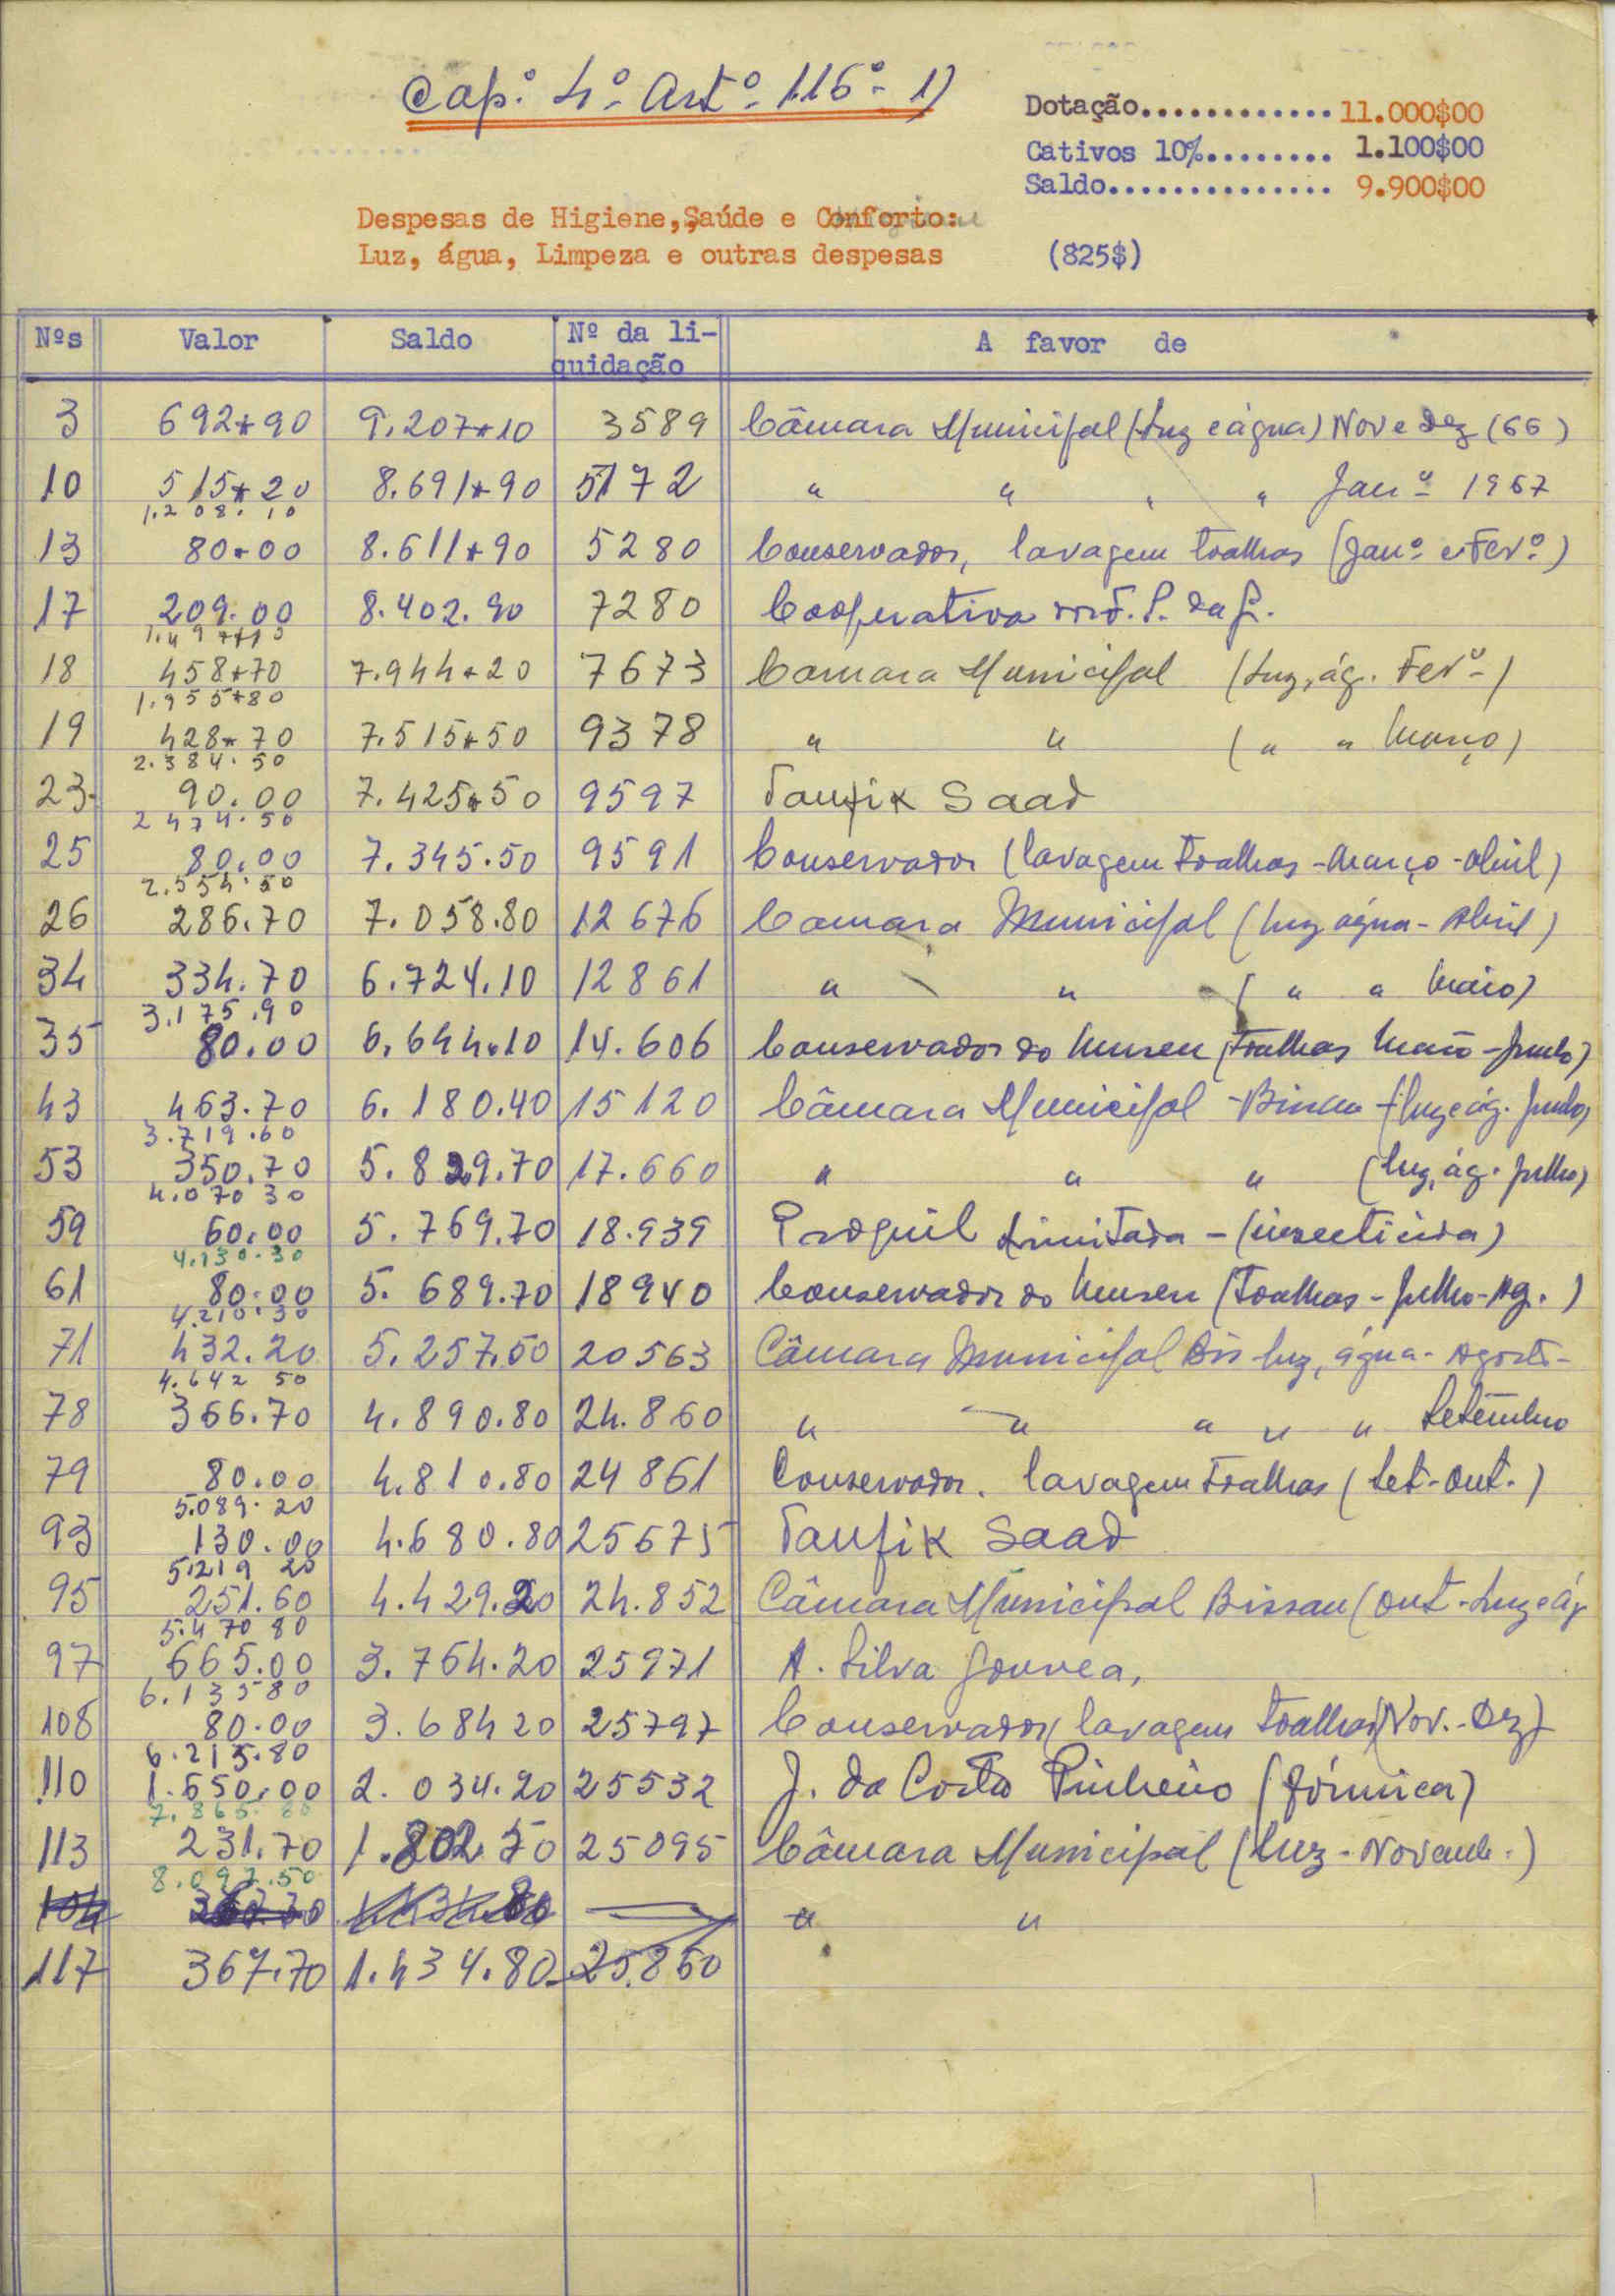 Cap.º 4º Artº 116º 1)
Dotação............ 11.000$00
Cativos 10%........ 1.100$00
Saldo.............. 9.900$00
Despesas de Higiene, Saúde e Conforto:
Luz, água, Limpeza e outras despesas (825$)
Nºs Valor Saldo Nº da li-quidação A favor de
3 692*90 9.207*10 3589 Câmara Municipal (Luz e água) Nov e Dez (66)
10 515*20 8.691*90 5172 " " " " Janº 1967
1.208.10
13 80*00 8.611*90 5280 Conservador, lavagem toalhas (Janº e Fevº)
17 209.00 8.402.90 7280 Cooperativa
1.497*10
18 458*70 7.944*20 7673 Camara Municipal (Luz, ág. Fevº)
1.955*80
19 428*70 7.515*50 9378 " " ( " " Março)
2.384.50
23 90.00 7.425*50 9597 Taufik Saad
2474.50
25 80.00 7.345.50 9591 Conservador (lavagem toalhas - Março - Abril)
2.554.50
26 286.70 7.058.80 12676 Camara Municipal (luz água - Abril)
34 334.70 6.724.10 12861 " " ( " " Maio)
3.175.90
35 80.00 6.644.10 14.606 Conservador do Museu (toalhas Maio - Junho)
43 463.70 6.180.40 15120 Câmara Municipal - Bissau (luz e ág. Junho)
3.719.60
53 350.70 5.829.70 17.660 " " " (luz, ág. Julho)
4.070 30
59 60.00 5.769.70 18.939 Proquil Limitada - (insecticida)
4.130.30
61 80.00 5.689.70 18940 Conservador do Museu (toalhas - Julho - Ag.)
4.210.30
71 432.20 5.257.50 20563 Câmara Municipal Bis luz, água - Agosto -
4.642 50
78 366.70 4.890.80 24.860 " " " " " Setembro
79 80.00 4.810.80 24861 Conservador. lavagem toalhas (Set-Out.)
5.089.20
93 130.00 4.680.80 25675 Taufik Saad
5.219 20
95 251.60 4.429.20 24.852 Câmara Municipal Bissau (Out - Luz e ág
5.470 80
97 665.00 3.764.20 25971 A. Silva Gouvea,
6.135 80
108 80.00 3.684 20 25797 Conservador (lavagem toalhas) (Nov. - Dez)
6.215.80
110 1.650.00 2.034.20 25532 J. da Costa Pinheiro (fórmica)
7.865.80
113 231.70 1.802.50 25095 Câmara Municipal (luz - Novemb.)
8.097.50
104 " "
117 367.70 1.434.80 25.860